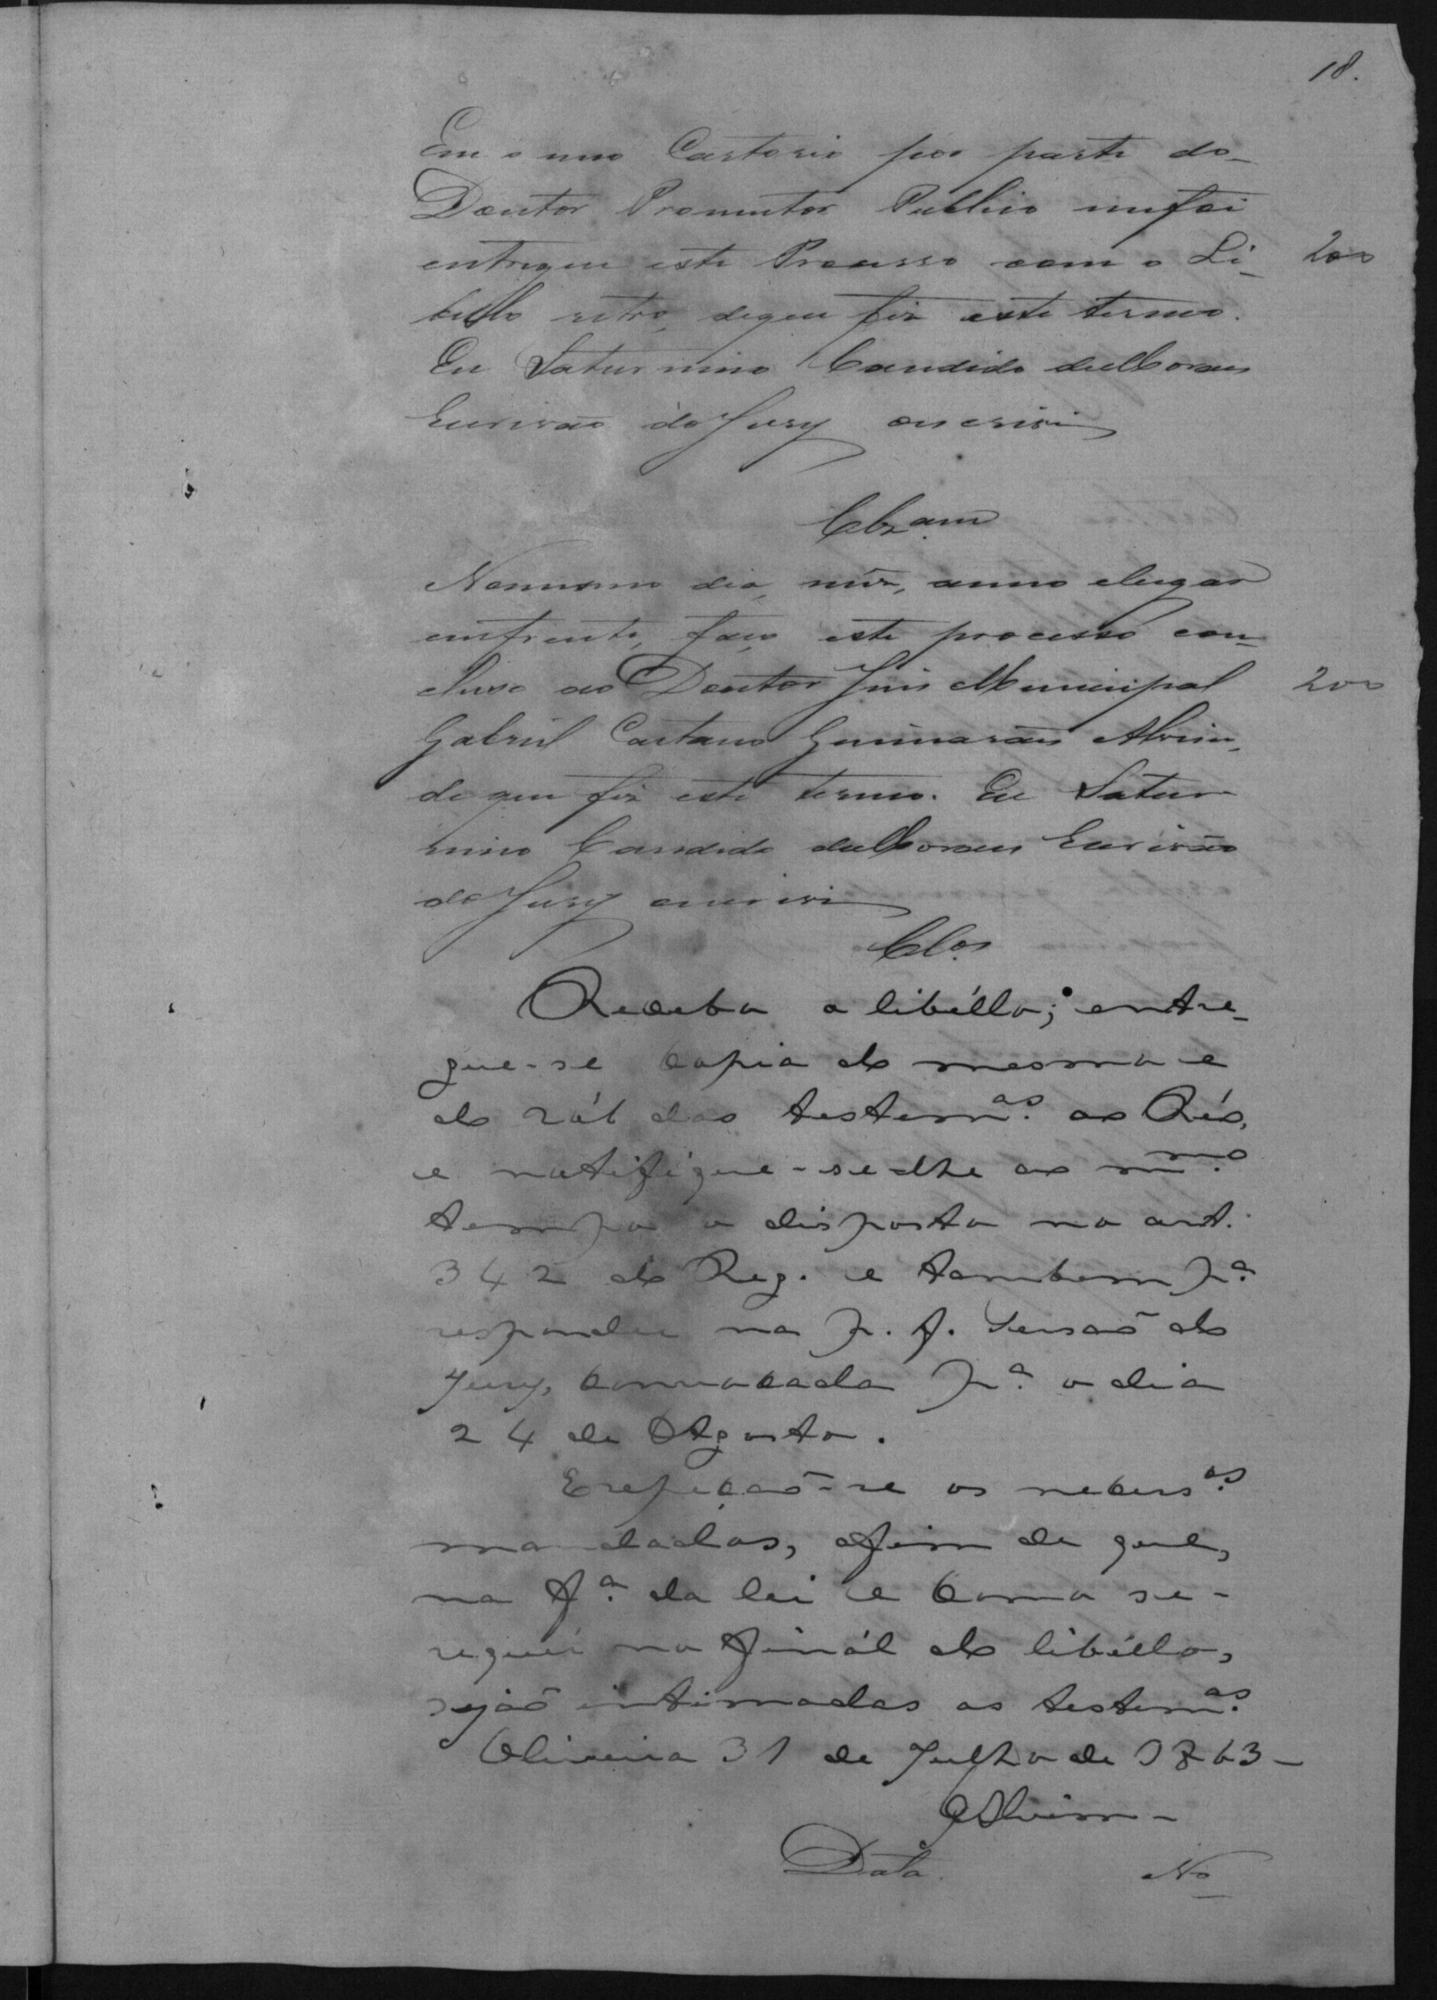 18.
Em o meo Cartorio por parte do
Doutor Promutor Publico me foi
entregue este Processo com o Li- 200
bello retro, de que fiz este termo.
Eu Saturnino Candido de Moraes
Escrivão do Jury escrevi
Clzam
No mesmo dia, mez, anno e lugar
em frente, faço este processo con-
cluso ao Doutor Juis Municipal 200
Gabriel Caetano Guimarães Alvim,
de que fiz este termo. Eu Satur
nino Candido de Moraes Escrivão
do Jury escrevi
Clos
Recebo o libéllo; entre-
gue-se copia do mesmo e
do ról das testemas. ao Réo,
e notifique-se-lhe ao mmo.
tempo o disposto no art.
342 do Reg. e tambem pa.
responder na p. f. Sensaõ do
Jury, convocada pa. o dia
24 de Agosto.
Expeçaõ-se os necessos.
mandados, afim de que,
na fa. da lei e como se
requer no finál do libéllo,
sejaõ intimadas as testemas.
Oliveira 31 de Julho de 1863-
GAlvim-
Data. No